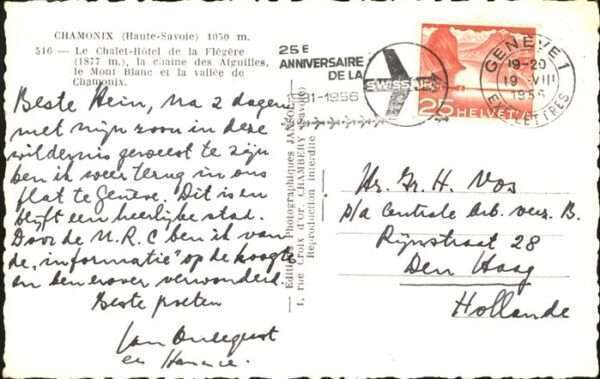 CHAMONIX (Haute-Savoie) 1050 m.
516 — Le Chalet-Hôtel de la Flégère
(1877 m.), la chaîne des Aiguilles,
le Mont Blanc et la vallée de
Chamonix.
Beste Hein, Na 2 dagen
met mijn zoon in deze
wildernis geweest te zijn
ben ik weer terug in ons
flat te Genève. Dit is en
blijft een heerlijke stad.
Door de N.R.C ben ik van
de „informatie" op de hoogte
en ben erover verwonderd.
Beste poeten
Jan
en
Editions Photographiques
1, rue Croix d'Or, CHAMBERY (Savoie)
Reproduction interdite
25E
ANNIVERSAIRE
DE LA
SWISSAIR
1931-1956
GENÈVE 1
19-20
19. VIII
1956
EXP. LETTRES
25 HELVETIA
Hr. Gr. H. Vos
p/a Centrale Arb. verz. B.
Rijnstraat 28
Den Haag
Hollande